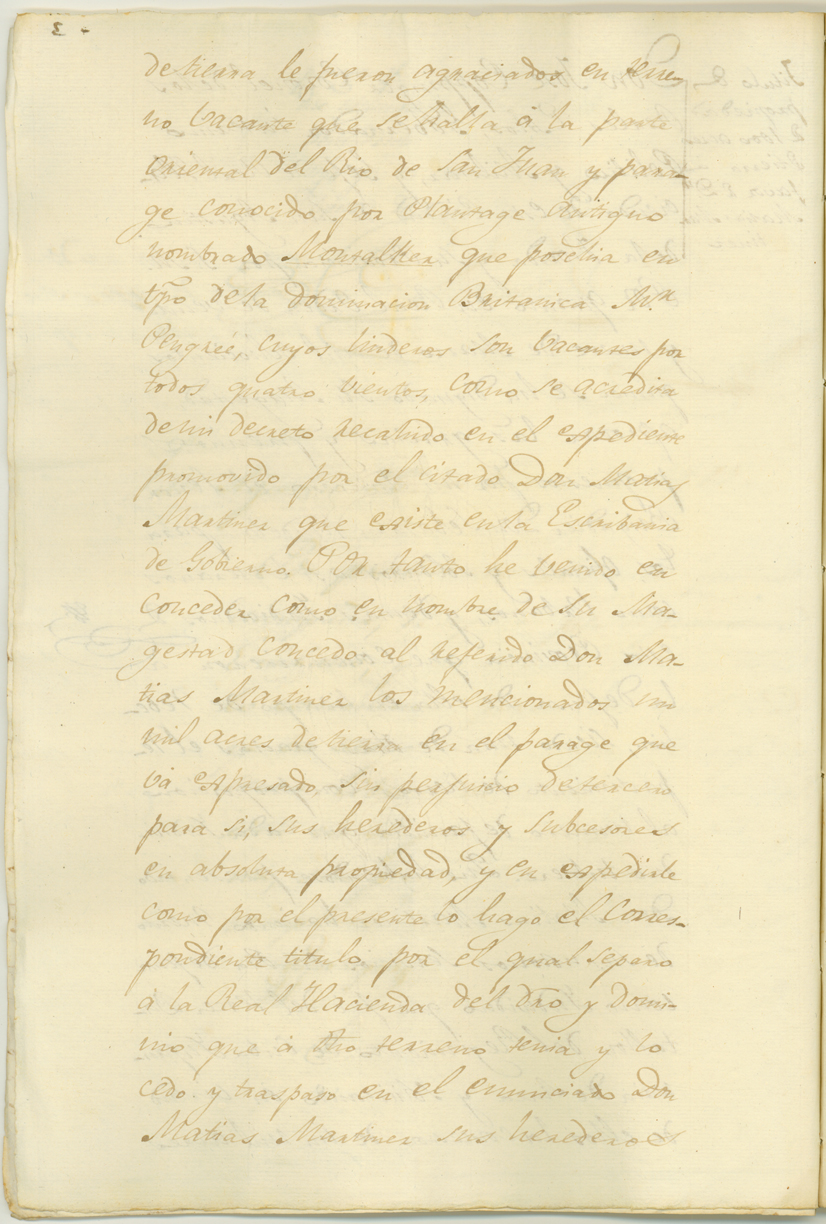 de tierra le fueron agraciados en terre-
no vacante que se halla á la parte
oriental del Rio de San Juan y para-
ge conocido por Plantage antiguo
nombrado que posehia en
tpo de la dominacion Britanica Mr.
Pengree, cuyos linderos son vacantes por
todos quatro vientos, como se acredita
de mi decreto recahido en el espediente
promovido por el citado Don Matias
Martinez que esiste en la Escribania
de Gobierno. Por tanto he venido en
conceder como en nombre de su Ma-
gestad concedo al referido Don Ma-
tias Martinez los mencionados un
mil acres de tierra en el parage que
vá espresado sin perjuicio de tercero
para si, sus herederos y subcesores
en absoluta propiedad, y en espedirle
como por el presente lo hago el corres-
pondiente titulo por el qual separo
á la Real Hacienda del dro y domi-
nio que á dho terreno tenia y lo
cedo y traspaso en el enunciado Don
Matias Martinez sus herederos